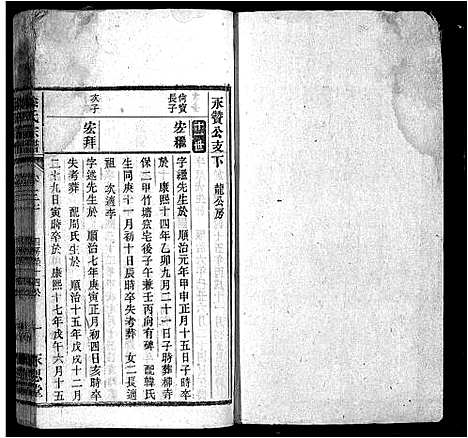 永贊公支下 龍公房
十世
尙賓長子
宏䆁
字繼先生於 順治元年甲申正月十五日子時卒
於 康熙十四年乙卯九月二十一日子時葬柳寺
保二甲竹塘窊宅後子午兼壬丙向有碑 配韓氏
生同庚十一月初十日辰時卒失考葬 女二長適
祖 次適李
次子
宏拜
字遙先生於 順治七年庚寅正月初四日亥時卒
失考葬 配周氏生於 順治十五年戊戌十二月
二十九日寅時卒於 康熙十七年戊午六月十五
氏宗譜
一
永思堂